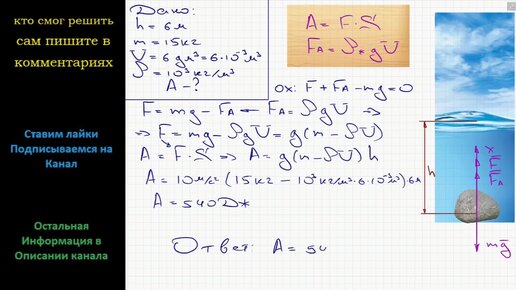 кто смог решить
сам пишите в
комментариях
Ставим лайки
Подписываемся на
Канал
Остальная
Информация в
Описании канала
Дано:
h = 6м
m = 15кг
V = 6 дм³ = 6·10⁻³ м³
ρ = 10³ кг/м³
A - ?
A = F·S
F_A = ρж g V
ox: F + F_A - mg = 0
F = mg - F_A F_A = ρgV ⇒
⇒ F = mg - ρgV = g(m - ρV)
A = F·S ⇒ A = g(m - ρV) h
A = 10 м/с² (15кг - 10³ кг/м³·6·10⁻³м³)·6м
A = 540 Дж
Ответ: A = 54
x
F
F_A
h
mg